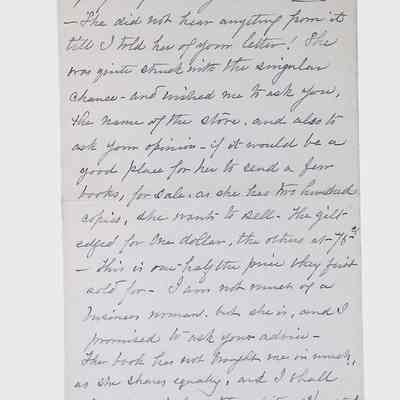 - She did not hear anything from it
till I told her of your letter! She
was quite struck with the singular
chance - and wished me to ask you,
the name of the store. and also to
ask your opinion - if it would be a
good place for her to send a few
books, for sale. as she has two hundred
copies, she wants to sell - The gilt-
edged for one dollar, the others at 75 cts
- This is one-half the price they first
sold for - I am not much of a
business woman. but she is, and I
promised to ask your advice -
The book has not brought me in much,
as she shares equally, and I shall